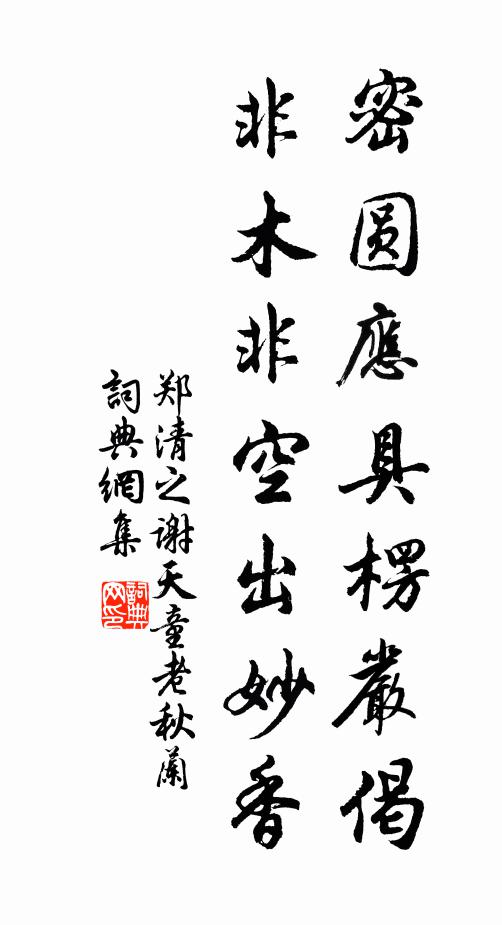 密圆應具楞嚴偈
非木非空出妙香
郑清之谢天童老秋蘭
詞典網集
詞典
网印